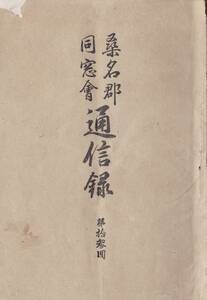 桑名郡
同窓會
通信録
第拾參回